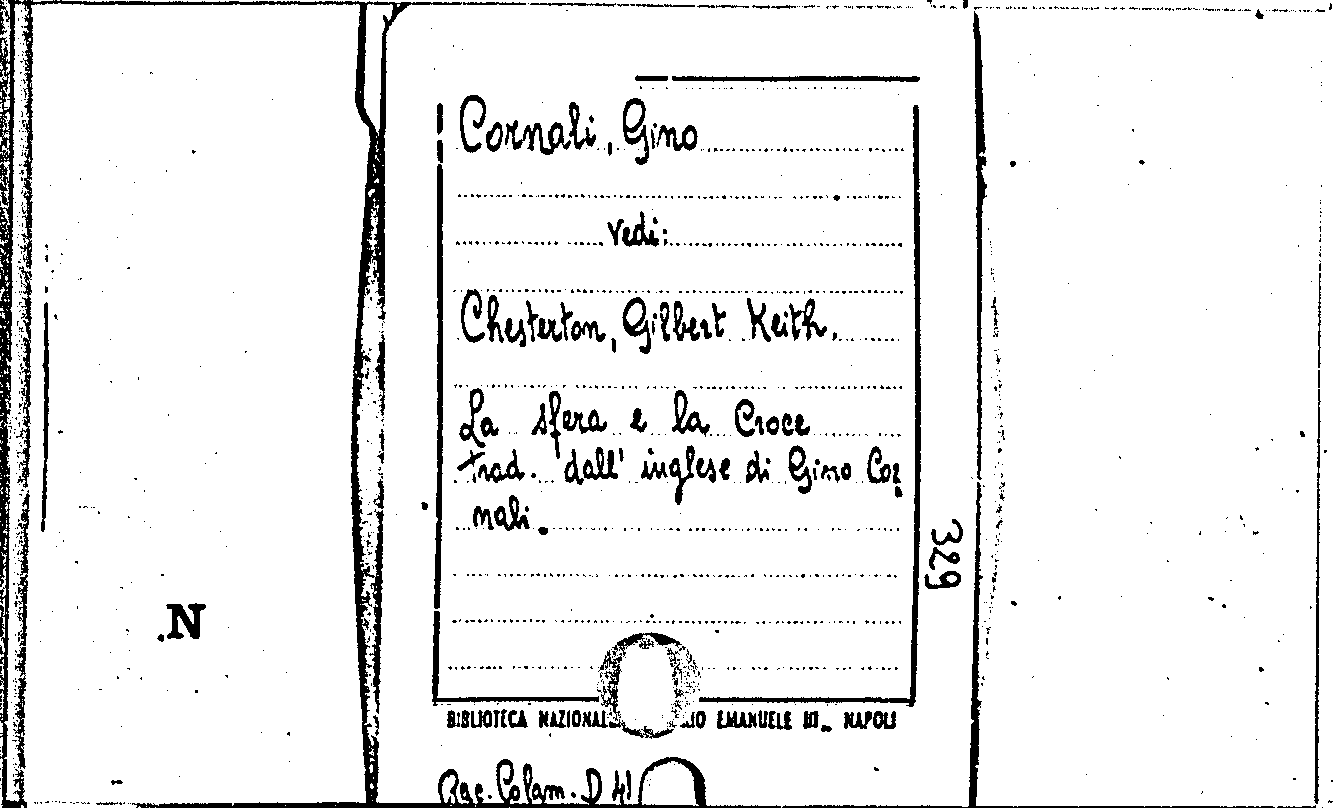 Cornali, Gino
vedi:
Chesterton, Gilbert Keith.
La sfera e la Croce
trad. dall' inglese di Gino Cor
nali.
329
N
BIBLIOTECA NAZIONALE EMANUELE III_ NAPOLI
Rac. Colam. D 41